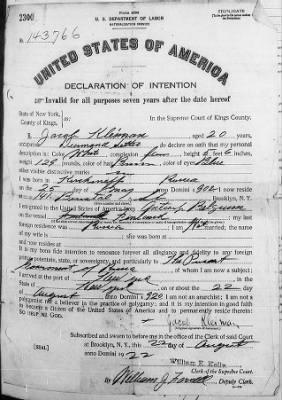 2300
U. S. DEPARTMENT OF LABOR
NATURALIZATION SERVICE
TRIPLICATE
No. 143766
UNITED STATES OF AMERICA
DECLARATION OF INTENTION
Invalid for all purposes seven years after the date hereof
State of New York,
County of Kings, ss:
In the Supreme Court of Kings County.
I, Jacob Kleiman aged 20 years,
occupation Diamond Setter do declare on oath that my personal
description is: Color White, complexion, height 5 feet inches,
weight 125 pounds, color of hair Brown, color of eyes Blue
other visible distinctive marks
I was born in Russia
on the 25 day of May, anno Domini 1902; I now reside
at Brooklyn, N. Y.
I emigrated to the United States of America from
on the vessel; my last
foreign residence was Russia; I am Not married; the name
of my wife is; she was born at
and now resides at
It is my bona fide intention to renounce forever all allegiance and fidelity to any foreign
prince, potentate, state, or sovereignty, and particularly to The Present
Government of Russia, of whom I am now a subject;
I arrived at the port of New York, in the
State of New York, on or about the 22 day
of August, anno Domini 1920; I am not an anarchist; I am not a
polygamist nor a believer in the practice of polygamy; and it is my intention in good faith
to become a citizen of the United States of America and to permanently reside therein:
SO HELP ME GOD.
Jacob Kleiman
Subscribed and sworn to before me in the office of the Clerk of said Court
at Brooklyn, N. Y., this 22 day of August
anno Domini 1922
[SEAL]
William E. Kelly
Clerk of the Supreme Court.
By William J.
Deputy Clerk.